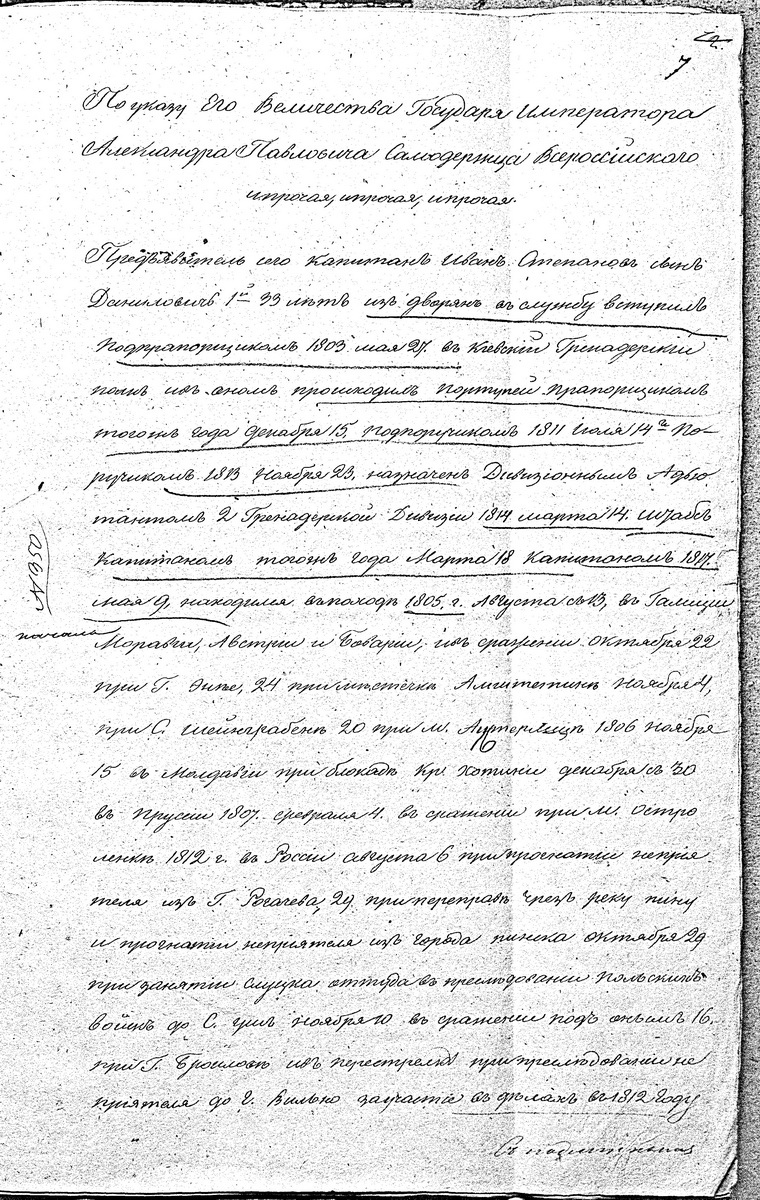 7
По указу Его Величества Государя Императора
Александра Павловича Самодержца Всероссiйскаго
ипрочая, ипрочая, ипрочая.
Предъявитель сего Капитанъ Иванъ Степановъ сынъ
Даниловичъ 1й 33 летъ изъ дворянъ въ службу вступилъ
Подпрапорщикомъ 1803 мая 27. въ Кiевскiй Гренадерскiй
полкъ ивъ ономъ происходилъ Портупей Прапорщикомъ
тогожъ года декабря 15, Подпоручикомъ 1811 Июля 14го По-
ручикомъ 1813 Ноября 23, назначенъ Дивизiоннымъ Адъю
тантомъ 2 Гренадерской Дивизiи 1814 марта 14. Штабсъ
Капитаномъ тогожъ года Марта 18 Капитаномъ 1817.
мая 9, находился въ походе 1805. г. Августа съ 13, въ Галицiи
№ 950
начала
Моравiи, Австрiи и Баварiи, ивъ сраженiи октября 22
при Г. Энсе, 24 при местечке Амштетине Ноября 4,
при С. Шейнграбене 20 при м. Аустерлице 1806 Ноября
15 въ Молдавiи при блокаде Кр. Хотина декабря съ 30
въ Прусiи 1807. февраля 4. въ сраженiи при М. Остро
ленке 1812 г. въ Россiи августа 6 при прогнатiи непрiя
теля изъ Г. Рогачева, 29 при переправе чрезъ реку пину
и прогнатiи непрiятеля изъ города пинска октября 29
при занятiи Слуцка оттуда въ преследованiи Польскихъ
войскъ до С. Ноября 10 въ сраженiи подъ онымъ 16.
при Г. Брилове ивъ перестрелке при преследованiи не
прiятеля до г. Вильно заучастiе въ делахъ въ 1812 Году